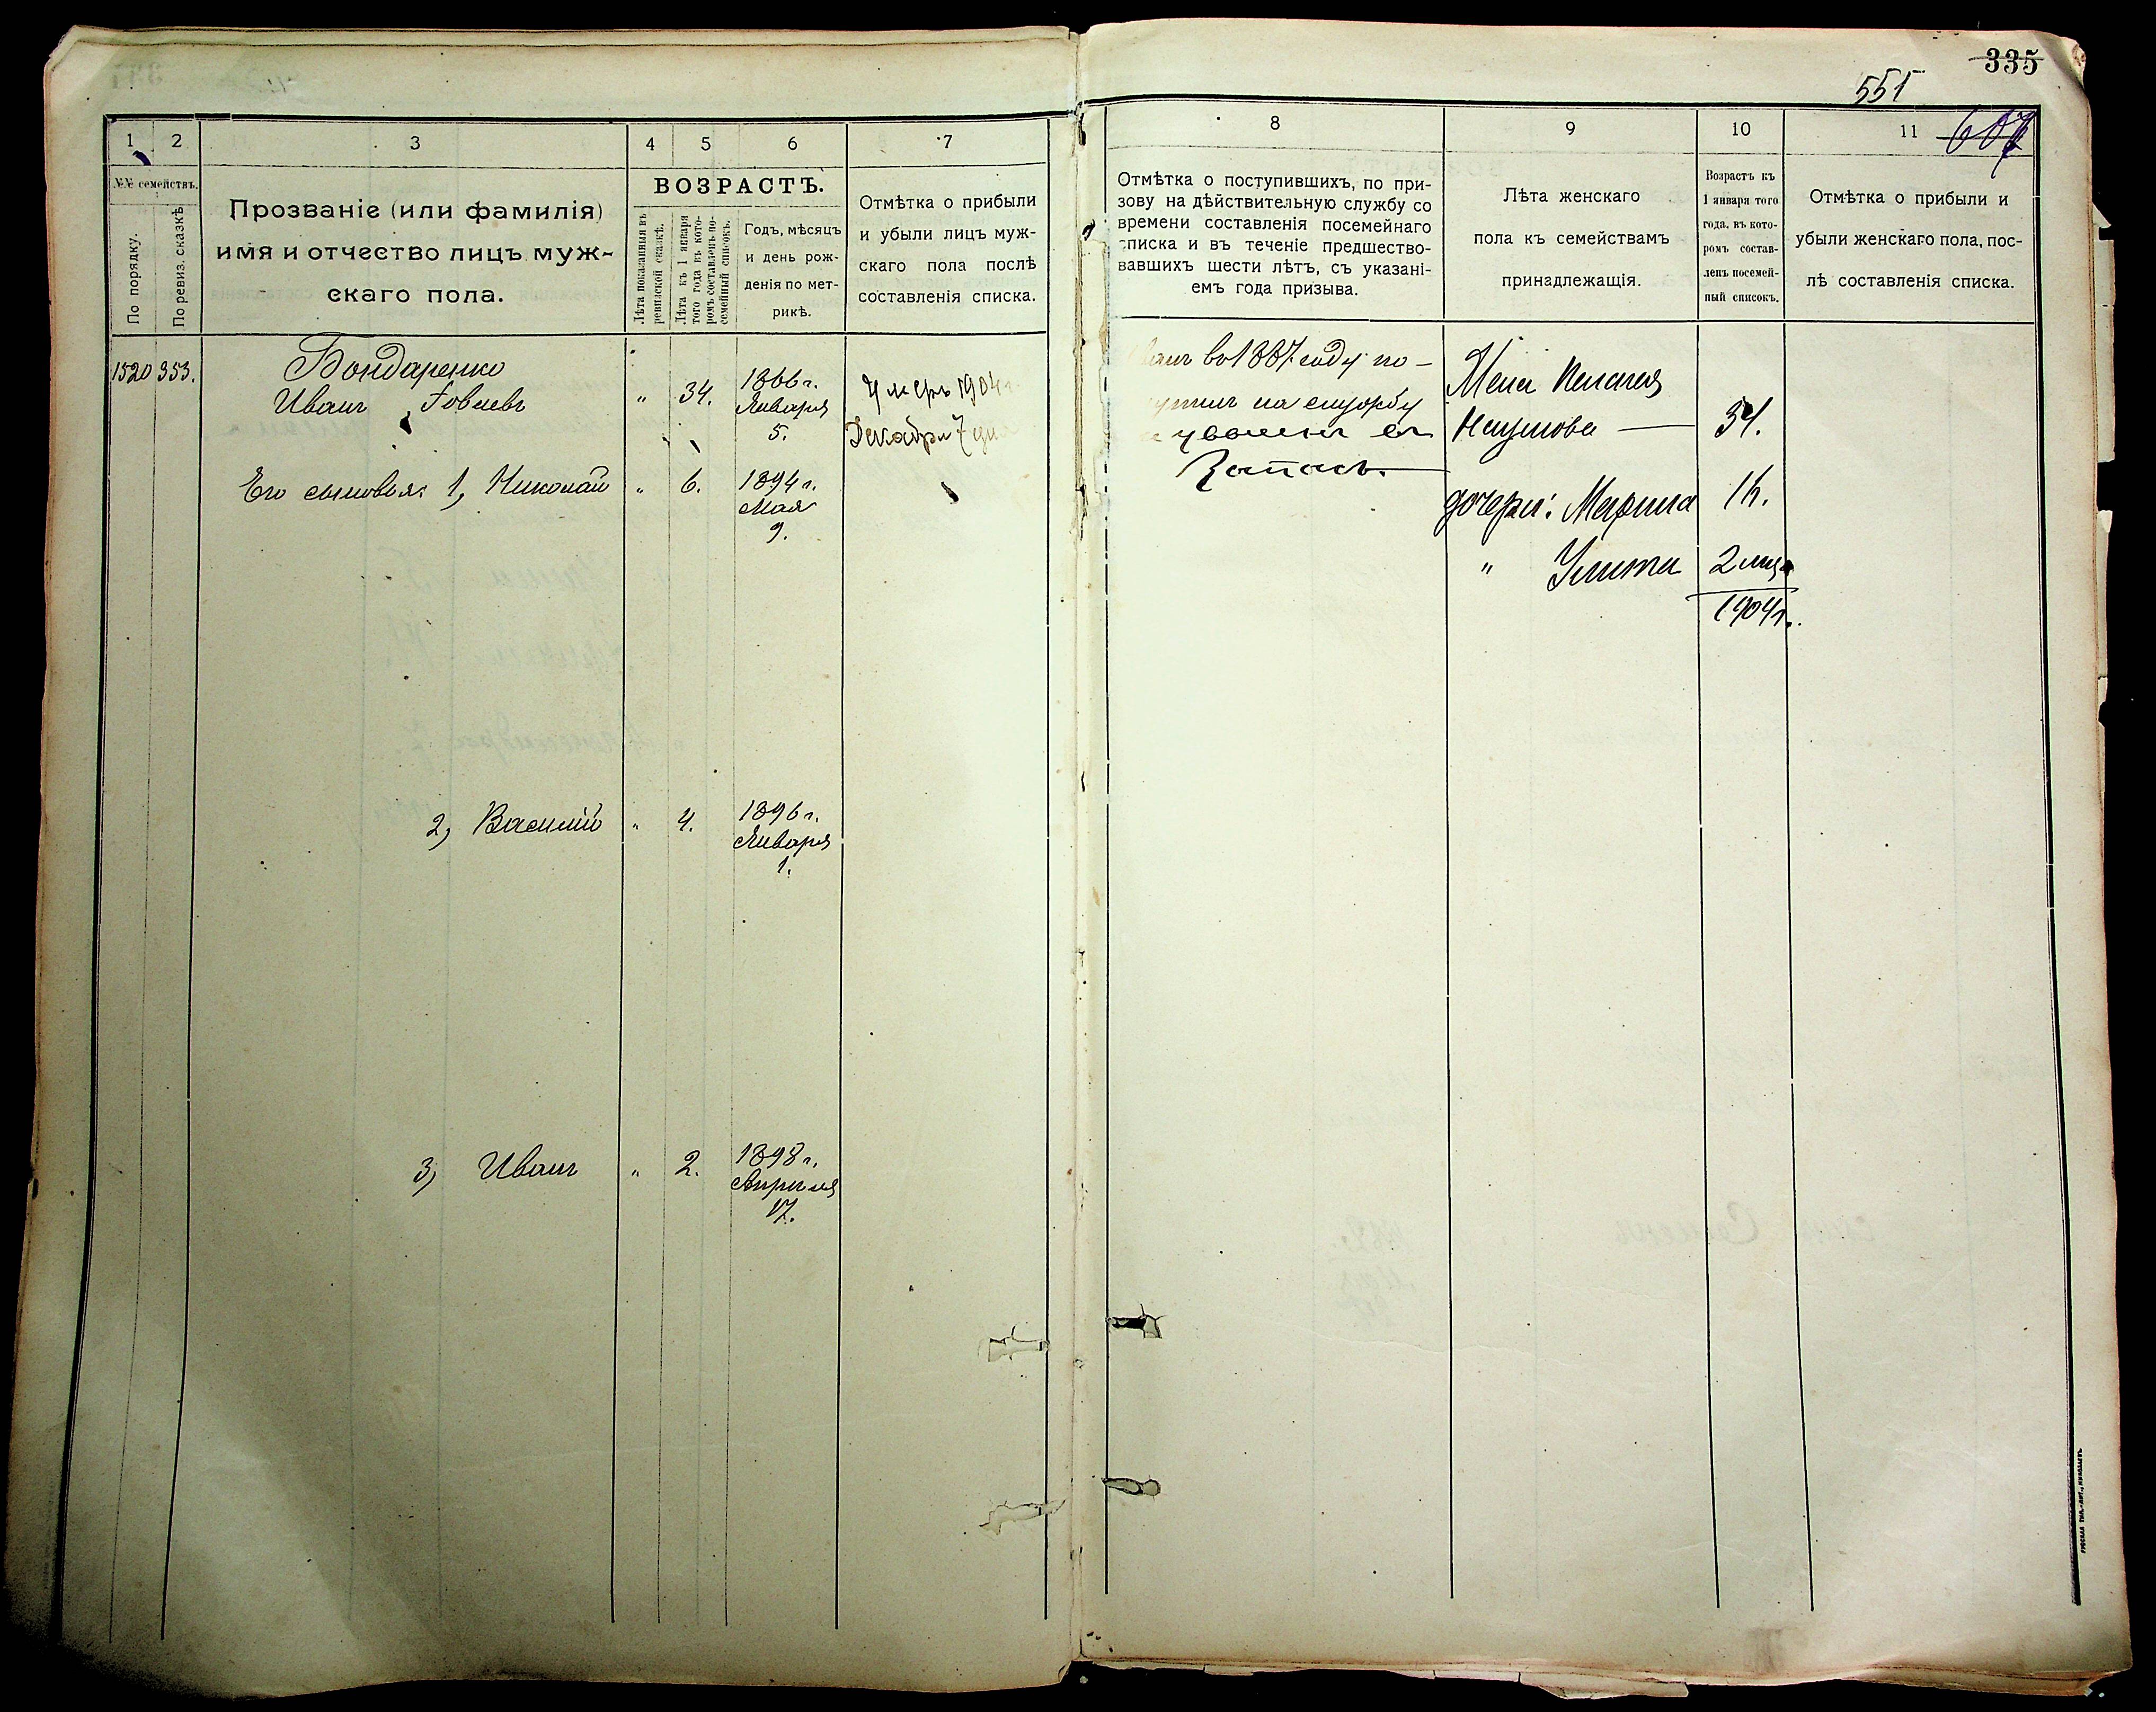 335
551
607
1
2
3
4
5
6
7
№№ семействъ.
По порядку.
По ревиз. сказкѣ
Прозваніе (или фамилія)
имя и отчество лицъ муж-
скаго пола.
ВОЗРАСТЪ.
Лѣта показанныя въ
ревизской сказкѣ.
Лѣта къ 1 января
того года въ кото-
ромъ составленъ по-
семейный списокъ.
Годъ, мѣсяцъ
и день рож-
денія по мет-
рикѣ.
Отмѣтка о прибыли
и убыли лицъ муж-
скаго пола послѣ
составленія списка.
1520
353.
Бондаренко
Иванъ Іовлевъ
"
34.
1866 г.
Января
5.
Умеръ 1904 г.
Декабря 7 дня
Его сыновья: 1, Николай
"
6.
1894 г.
Мая
9.
2, Василій
"
4.
1896 г.
Января
1.
3, Иванъ
"
2.
1898 г.
Апрѣля
17.
8
9
10
11
Отмѣтка о поступившихъ, по при-
зову на дѣйствительную службу со
времени составленія посемейнаго
списка и въ теченіе предшество-
вавшихъ шести лѣтъ, съ указані-
емъ года призыва.
Лѣта женскаго
пола къ семействамъ
принадлежащія.
Возрастъ къ
1 января того
года, въ кото-
ромъ состав-
ленъ посемей-
ный списокъ.
Отмѣтка о прибыли и
убыли женскаго пола, пос-
лѣ составленія списка.
Иванъ въ 1887 году по-
ступилъ на службу
и уволенъ въ
Запасъ.
Жена Пелагея
Наумова —
34.
дочери: Марина
" Улита
2 мѣс.
1904 г.
РУССКАЯ ТИП.-ЛИТ., НИКОЛАЕВЪ.